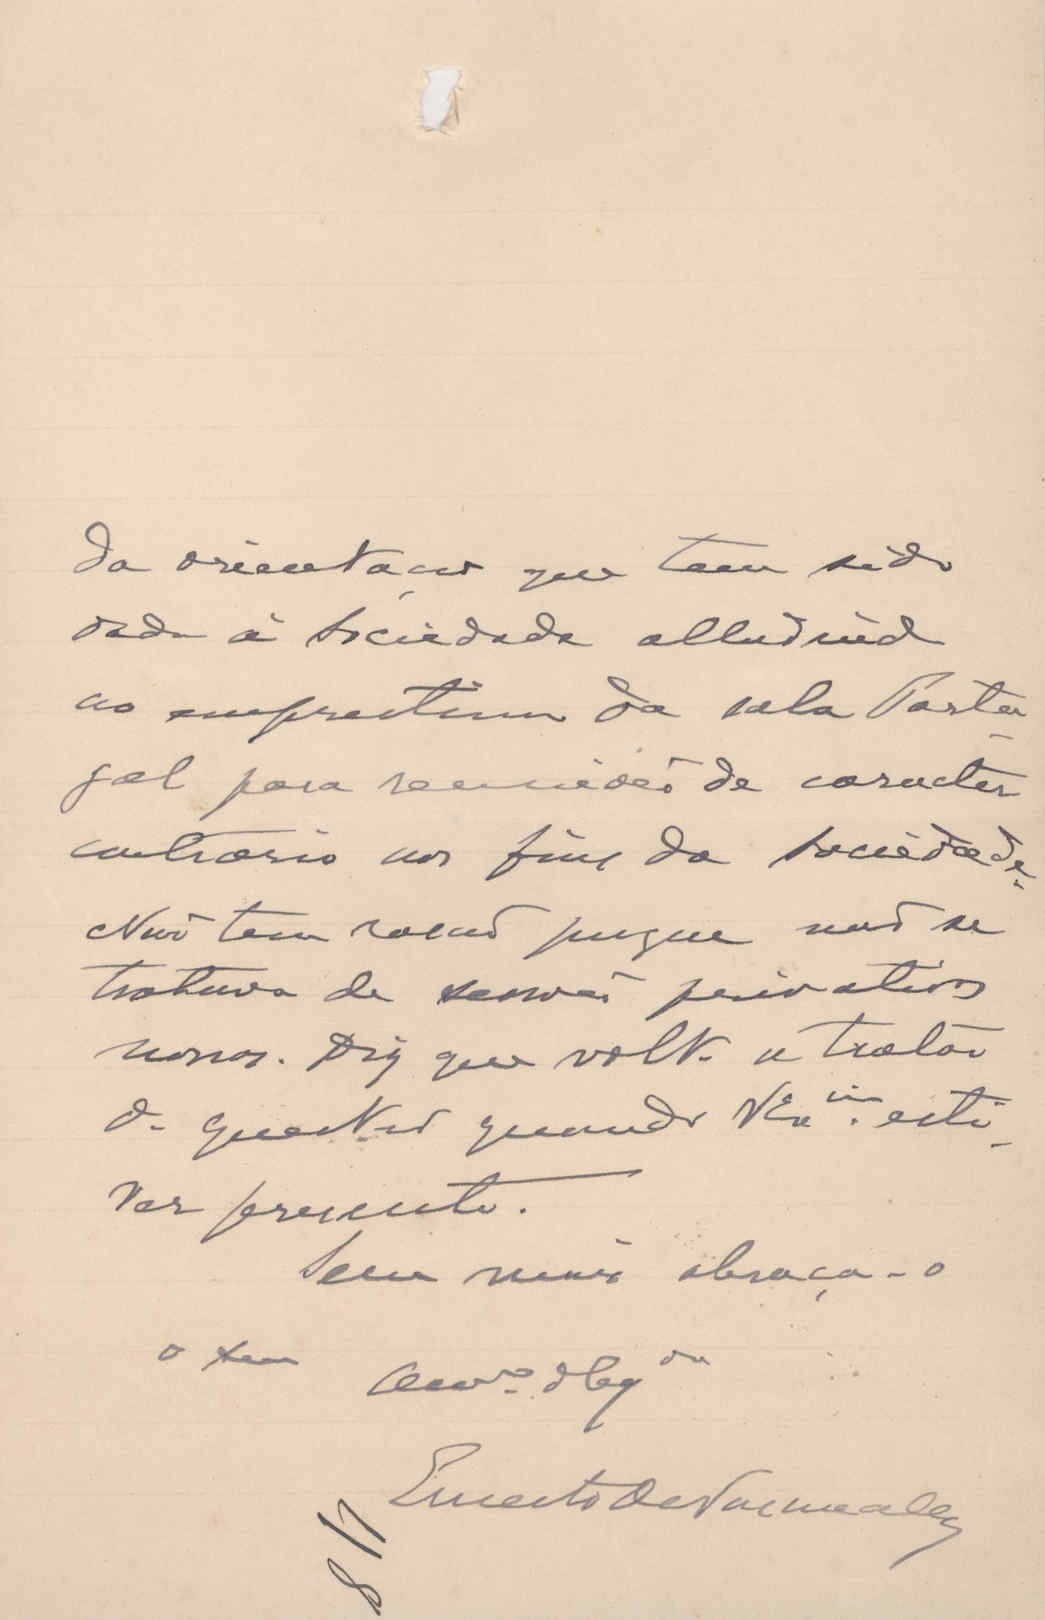 da orientação que tem sido
dada á Sociedade alludind
ao emprestimo da sala Portu-
gal para reuniões de caracter
contrario aos fins da Sociedade.
Não tem razão porque não se
tratava de sessões privativas
nossas. Diz que volta a tratar
da questão quando V Exª. esti-
ver presente.
Sem mais abraça-o
o seu
Amº. Obgdo
Ernesto de Vasconcellos
8/7